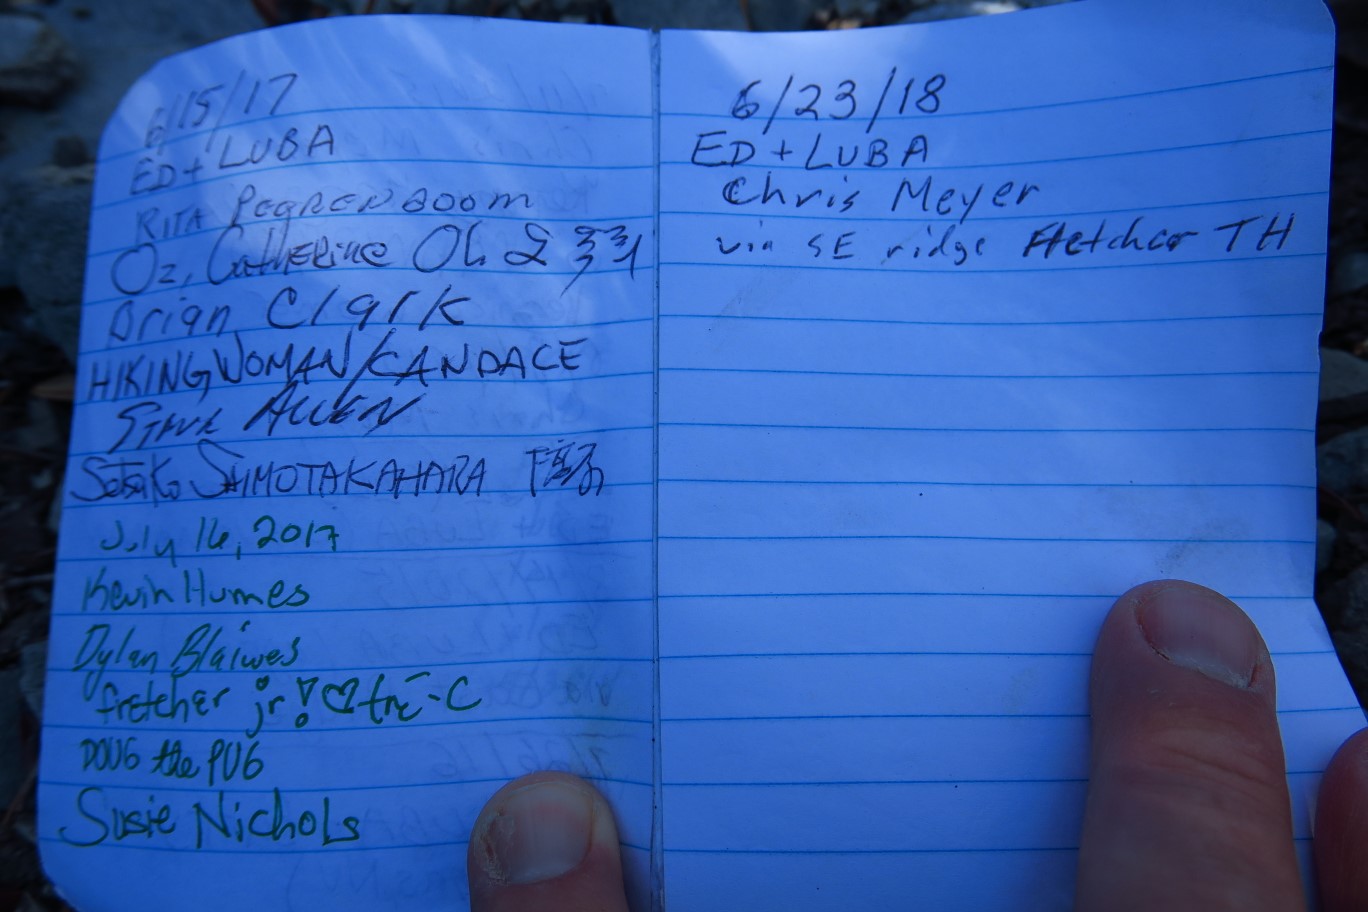 6/15/17
ED + LUBA
RITA PEGRENBOOM
Oz, Catherine Oh &
Brian Clark
HIKINGWOMAN/CANDACE
STEVE ALLEN
Setsuko SHIMOTAKAHARA 下高
July 16, 2017
Kevin Humes
Dylan Blaiwes
fretcher jr! ♡ tre-C
DOUG the PUG
Susie Nichols
6/23/18
ED + LUBA
Chris Meyer
via SE ridge Fletcher TH